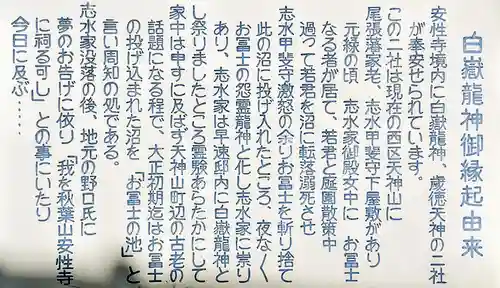 白嶽龍神御縁起由来
安性寺境内に白嶽龍神、歳徳天神の二社
が奉安せられています。
この二社は現在の西区天神山に
尾張藩家老、志水甲斐守下屋敷があり
元緑の頃、志水家御殿女中に　お富士
なる者が居て、若君と庭園散策中
過って若君を沼に転落溺死させ
志水甲斐守激怒の余りお富士を斬り捨て
此の沼に投げ入れたところ、夜な〱
お富士の怨霊龍神と化し志水家に祟り
あり、志水家は早速邸内に白嶽龍神と
し祭りましたところ霊験あらたかにして
家中は申すに及ばず天神山町辺の古老の
話題になる程で、大正初期迄はお富士
の投げ込まれた沼を「お冨士の池」と
言い周知の処である。
志水家没落の後、地元の野口氏に
夢のお告げに依り「我を秋葉山安性寺
に祠る可し」との事にいたり
今日に及ぶ・・・・・